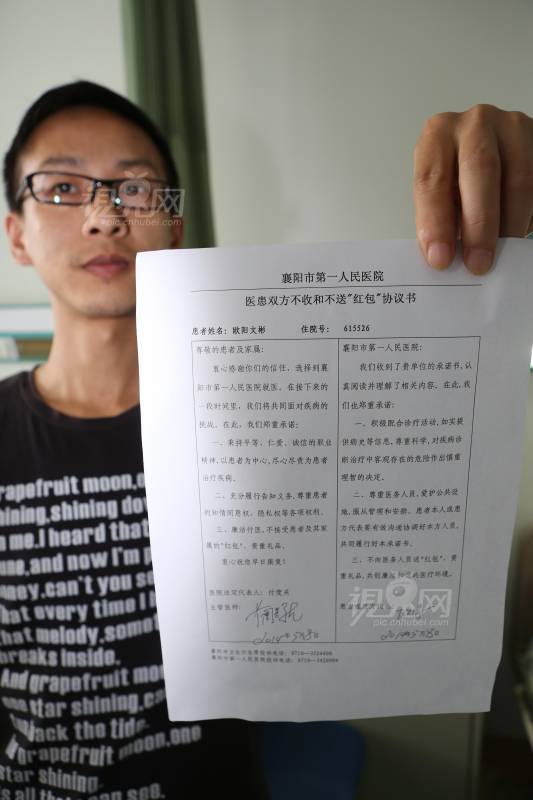 襄阳市第一人民医院
医患双方不收和不送"红包"协议书
患者姓名：欧阳文彬 住院号：615526
尊敬的患者及家属：
衷心感谢你们的信任，选择到襄
阳市第一人民医院就医。在接下来的
一段时间里，我们将共同面对疾病的
挑战。在此，我们郑重承诺：
一、秉持平等、仁爱、诚信的职业
精神，以患者为中心，尽心尽责为患者
治疗疾病。
二、充分履行告知义务，尊重患者
的知情同意权、隐私权等各项权利。
三、廉洁行医，不接受患者及其家
属的"红包"、贵重礼品。
衷心祝您早日康复！
医院法定代表人：付俊兵
主管医师：
2014年5月8日
襄阳市第一人民医院：
我们收到了贵单位的承诺书，认
真阅读并理解了相关内容。在此，我
们也郑重承诺：
一、积极配合诊疗活动，如实提
供病史等信息，尊重科学，对疾病诊
断治疗中客观存在的危险作出慎重
理智的决定。
二、尊重医务人员，爱护公共设
施，服从管理和安排。患者本人或患
方代表要有效沟通协调好本方人员，
共同履行好本承诺书。
三、不向医务人员送"红包"、贵
重礼品，共创廉洁
医疗环境。
2014年5月8日
襄阳市第一人民医院投诉电话：
grapefruit moon, one
shining, shining do
me, i heard that
and now I'm
can't you see
that every time I
that melody, some
breaks inside.
And grapefruit moon,
one star shining, ca
back the tide.
grapefruit moon, one
star shining,
is all that I can see.
视界网
pic.cnhubei.com